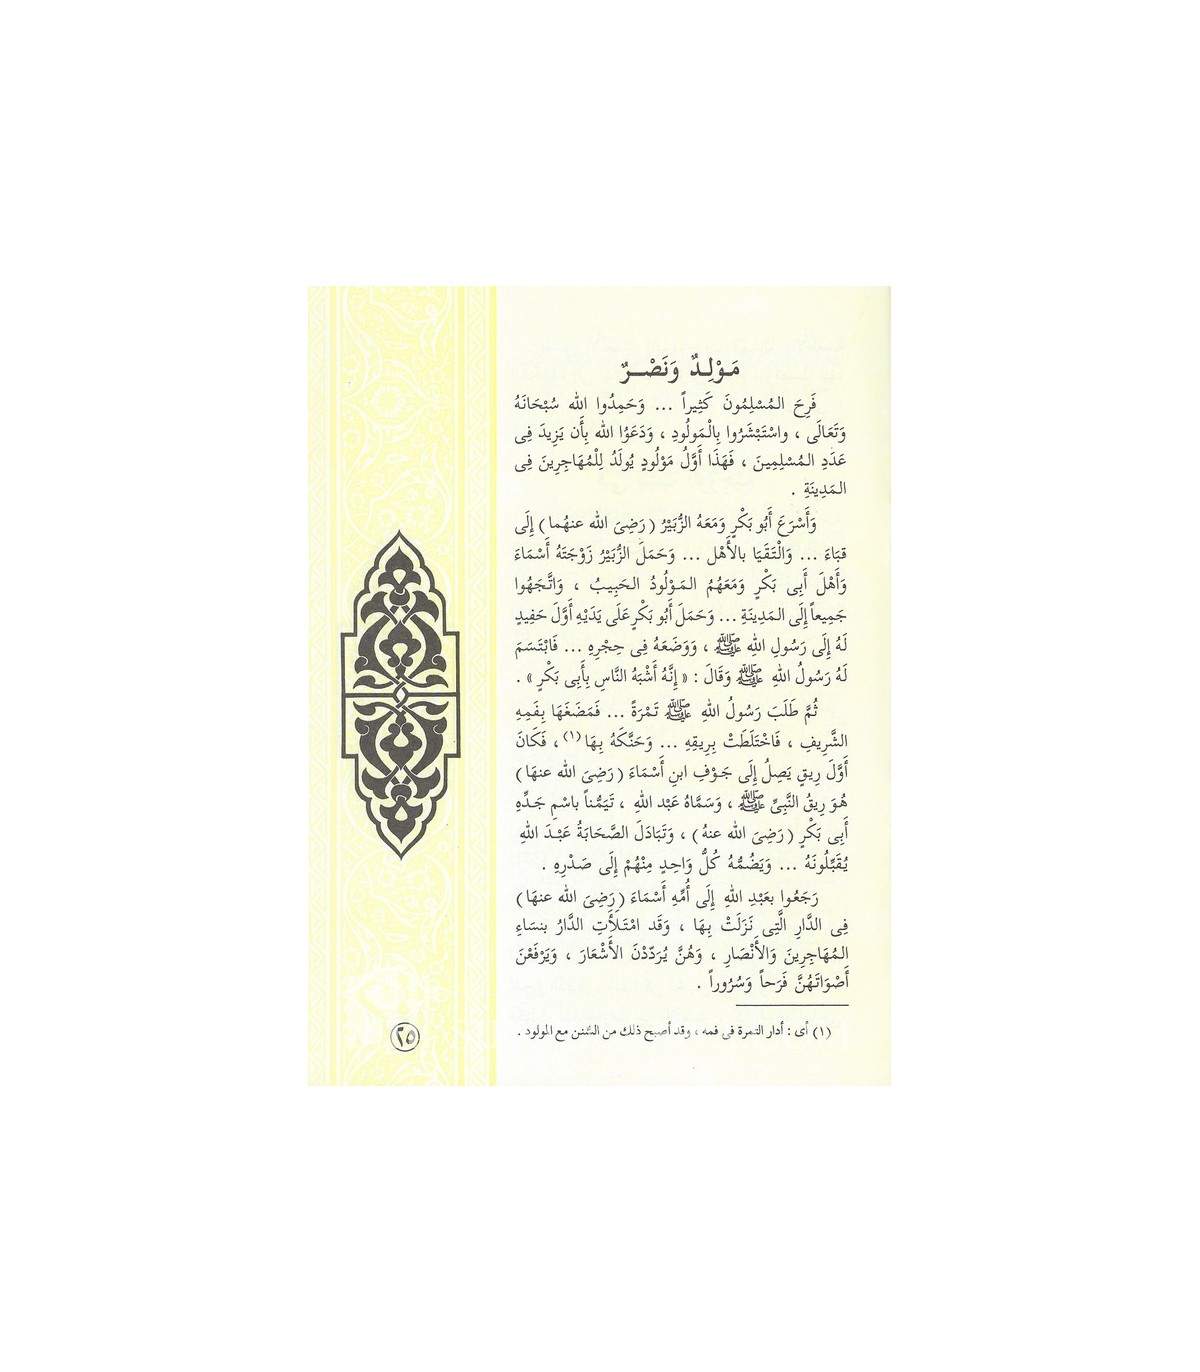 مَوْلِدٌ وَنَصْرٌ
فَرِحَ الـمُسْلِمُونَ كَثِيراً ... وَحَمِدُوا الله سُبْحَانَهُ
وَتَعَالَى ، واسْتَبْشَرُوا بِالْمَولُودِ ، وَدَعَوُا الله بِأَن يَزِيدَ فِى
عَدَدِ الـمُسْلِمِينَ ، فَهَذَا أَوَّلُ مَوْلُودٍ يُولَدُ لِلْمُهَاجِرِينَ فِى
الـمَدِينَةِ .
وَأَسْرَعَ أَبُو بَكْرٍ وَمَعَهُ الزُّبَيْرُ (رَضِىَ الله عنهُما) إِلَى
قبَاءَ ... وَالْتَقَيَا بالأَهْل ... وَحَمَلَ الزُّبَيْرُ زَوْجَتَهُ أَسْمَاءَ
وَأَهْلَ أَبِى بَكْرٍ وَمَعَهُمُ الـمَوْلُودُ الحَبِيبُ ، وَاتَّجَهُوا
جَمِيعاً إِلَى الـمَدِينَةِ ... وَحَمَلَ أَبُو بَكْرٍ عَلَى يَدَيْهِ أَوَّلَ حَفِيدٍ
لَهُ إِلَى رَسُولِ اللهِ ﷺ ، وَوَضَعَهُ فِى حِجْرِهِ ... فَابْتَسَمَ
لَهُ رَسُولُ اللهِ ﷺ وَقَالَ : « إِنَّهُ أَشْبَهُ النَّاسِ بِأَبِى بَكْرٍ » .
ثُمَّ طَلَبَ رَسُولُ اللهِ ﷺ تَمْرَةً ... فَمَضَغَهَا بِفَمِهِ
الشَّرِيفِ ، فَاخْتَلَطَتْ بِرِيقِهِ ... وَحَنَّكَهُ بِهَا (١) ، فَكَانَ
أَوَّلَ رِيقٍ يَصِلُ إِلَى جَوْفِ ابنِ أَسْمَاءَ (رَضِىَ الله عنهَا)
هُوَ رِيقُ النَّبِىِّ ﷺ ، وَسَمَّاهُ عَبْد اللهِ ، تَيَمُّناً باسْمِ جَدِّهِ
أَبِى بَكْرٍ (رَضِىَ الله عنهُ) ، وَتَبَادَلَ الصَّحَابَةُ عَبْدَ اللهِ
يُقَبِّلُونَهُ ... وَيَضُمُّهُ كُلُّ وَاحِدٍ مِنْهُمْ إِلَى صَدْرِهِ .
رَجَعُوا بعَبْدِ اللهِ إِلَى أُمِّهِ أَسْمَاءَ (رَضِىَ الله عنهَا)
فِى الدَّارِ الَّتِى نَزَلَتْ بِهَا ، وَقَد امْتَلَأَتِ الدَّارُ بنسَاءِ
الـمُهَاجِرِينَ وَالأَنْصَارِ ، وَهُنَّ يُرَدِّدْنَ الأَشْعَارَ ، وَيَرْفَعْنَ
أَصْوَاتَهُنَّ فَرَحاً وَسُرُوراً .
(١) أى : أدار التمرة فى فمه ، وقد أصبح ذلك من السُّنن مع المولود .
٢٥